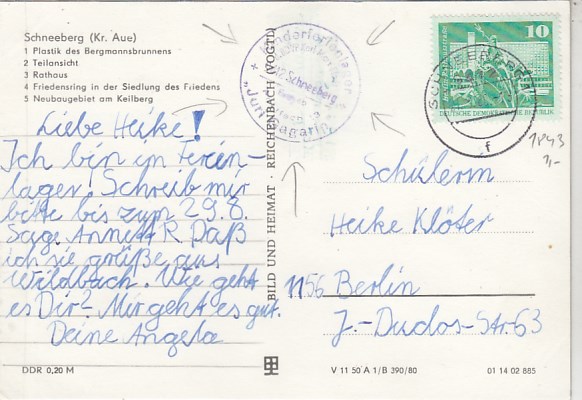 Schneeberg (Kr. Aue)
1 Plastik des Bergmannsbrunnens
2 Teilansicht
3 Rathaus
4 Friedensring in der Siedlung des Friedens
5 Neubaugebiet am Keilberg
Liebe Heike!
Ich bin im Ferien-
lager. Schreib mir
bitte bis zum 29.8.
Sage Annett R. Daß
ich sie grüße aus
Wildbach. Wie geht
es Dir? Mir geht es gut.
Deine Angela
DDR 0,20 M
BILD UND HEIMAT · REICHENBACH (VOGTL)
Kinderferienlager
Schneeberg
"Juri Gagarin"
10
DEUTSCHE DEMOKRATISCHE REPUBLIK
SCHNEEBERG
f
1843
1,-
Schülerin
Heike Klöter
1156 Berlin
J.-Duclos-Str. 63
V 11 50 A 1/B 390/80
01 14 02 885